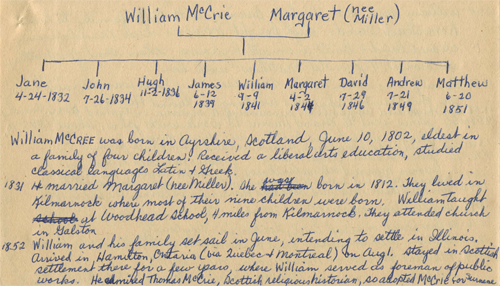 William McCrie Margaret (nee Miller)
Jane John Hugh James William Margaret David Andrew Matthew
4-24-1832 7-26-1834 11-2-1836 6-12 1839 9-9 1841 4-2 1844 7-29 1846 7-21 1849 6-20 1851
William McCREE was born in Ayrshire, Scotland June 10, 1802, eldest in
a family of four children. Received a liberal arts education, studied
classical languages Latin & Greek.
1831 He married Margaret (nee Miller). She was born in 1812. They lived in
Kilmarnock where most of their nine children were born. William taught
school at Woodhead School, 4 miles from Kilmarnock. They attended church
in Galston
1852 William and his family set sail in June, intending to settle in Illinois.
Arrived in, Hamilton, Ontario (via Quebec & Montreal) on Aug 1. stayed in Scottish
settlement there for a few years, where William served as foreman of public
works. He admired Thomas McCrie, Scottish religious historian, so adopted McCrie for surname